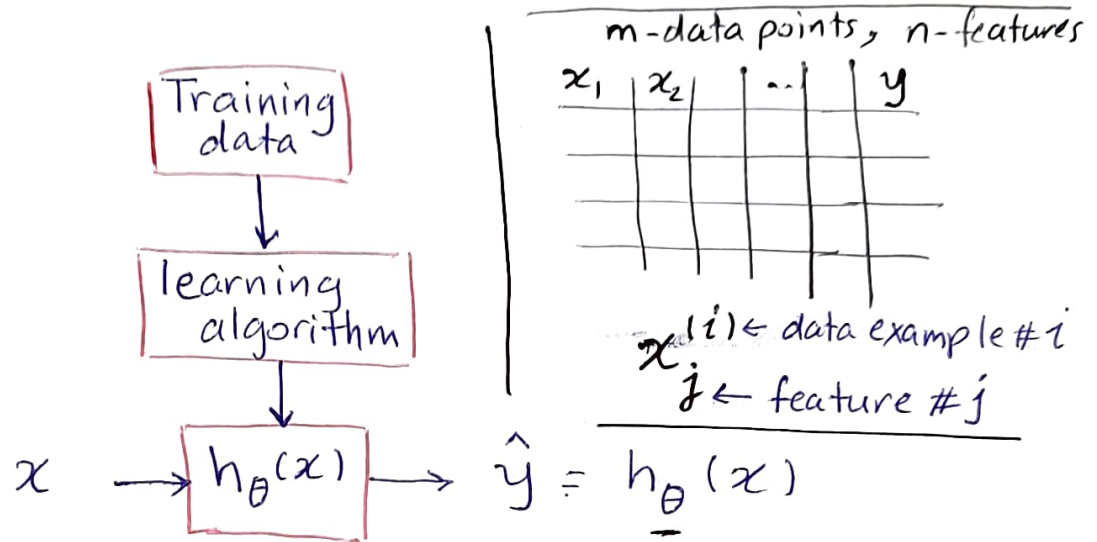 Training
data
learning
algorithm
x → h_θ(x) → ŷ = h_θ(x)
m-data points, n-features
x₁ x₂ ... y
x_j^(i) ← data example # i
j ← feature # j